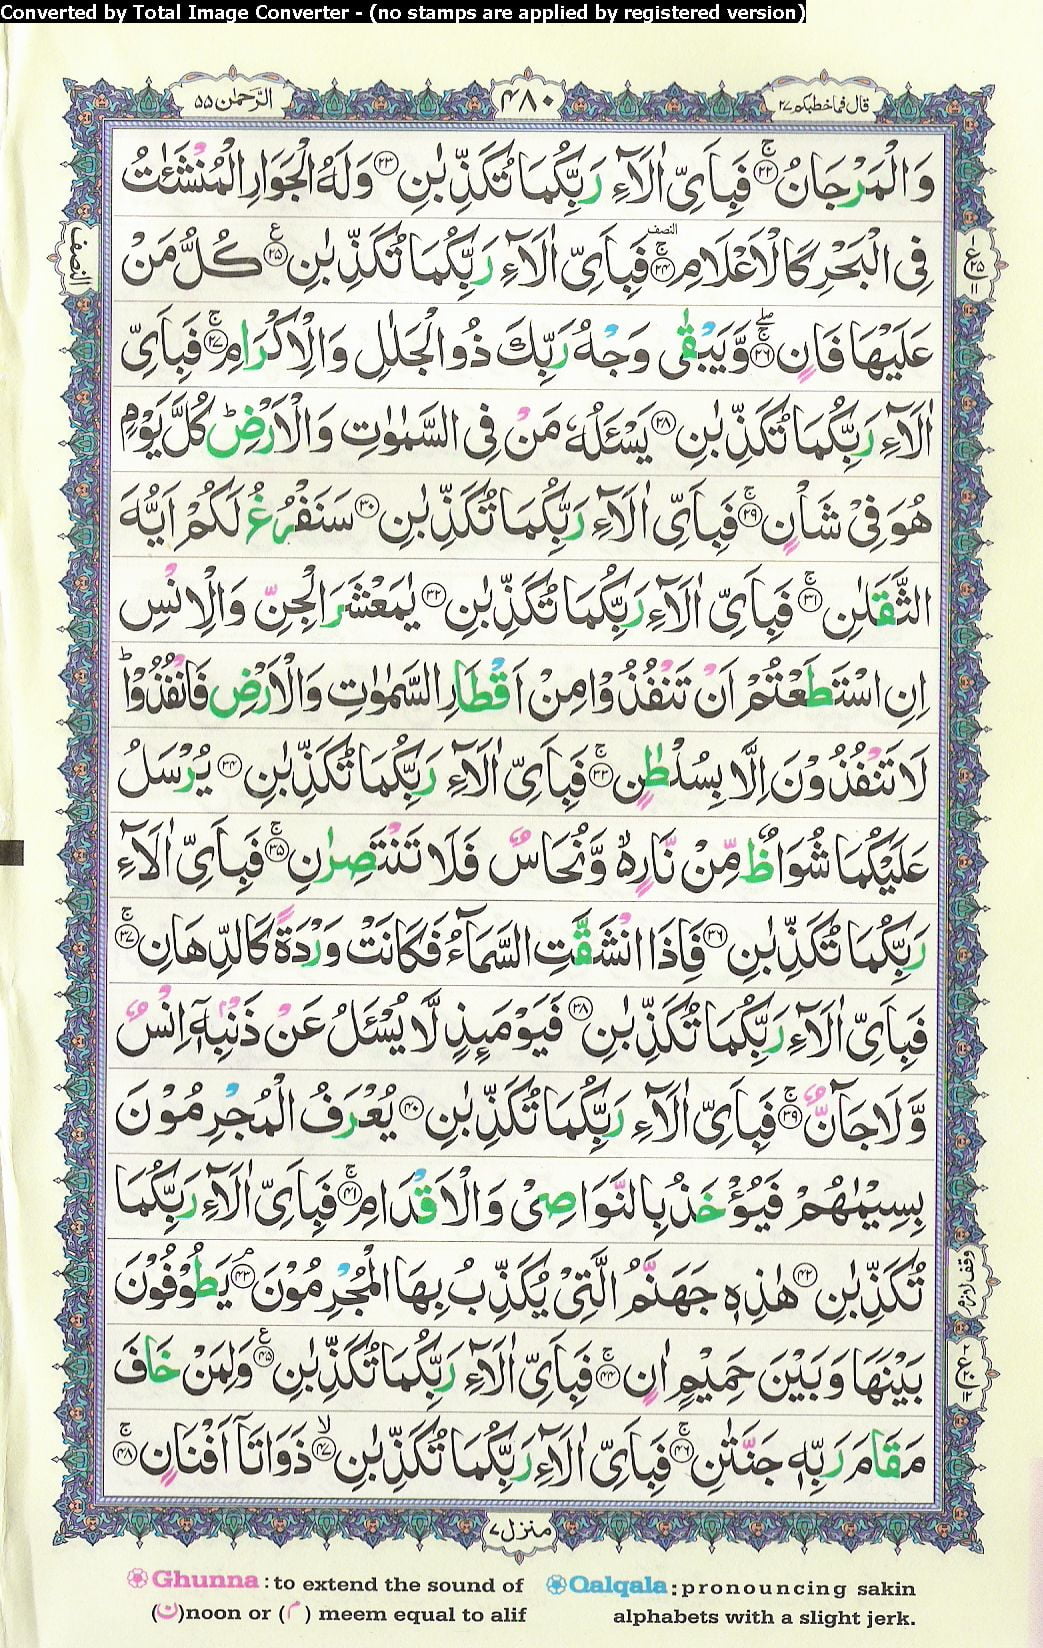 Converted by Total Image Converter - (no stamps are applied by registered version)
قال فما خطبكم ٢٧ ۴۸۰ الرّحمٰن ٥٥
وَالْمَرْجَانُ ۚ﴿۲۲﴾ فَبِاَیِّ اٰلَآءِ رَبِّكُمَا تُكَذِّبٰنِ ﴿۲۳﴾ وَلَهُ الْجَوَارِ الْمُنْشَئٰتُ
فِی الْبَحْرِ كَالْاَعْلَامِ ۚ﴿۲۴﴾ فَبِاَیِّ اٰلَآءِ رَبِّكُمَا تُكَذِّبٰنِ ﴿۲۵﴾ كُلُّ مَنْ
عَلَیْهَا فَانٍ ۚ﴿۲۶﴾ وَّیَبْقٰی وَجْهُ رَبِّكَ ذُو الْجَلٰلِ وَالْاِكْرَامِ ۚ﴿۲۷﴾ فَبِاَیِّ
اٰلَآءِ رَبِّكُمَا تُكَذِّبٰنِ ﴿۲۸﴾ یَسْـَٔلُهٗ مَنْ فِی السَّمٰوٰتِ وَالْاَرْضِ ؕ كُلَّ یَوْمٍ
هُوَ فِیْ شَاْنٍ ۚ﴿۲۹﴾ فَبِاَیِّ اٰلَآءِ رَبِّكُمَا تُكَذِّبٰنِ ﴿۳۰﴾ سَنَفْرُغُ لَكُمْ اَیُّهَ
الثَّقَلٰنِ ۚ﴿۳۱﴾ فَبِاَیِّ اٰلَآءِ رَبِّكُمَا تُكَذِّبٰنِ ﴿۳۲﴾ یٰمَعْشَرَ الْجِنِّ وَالْاِنْسِ
اِنِ اسْتَطَعْتُمْ اَنْ تَنْفُذُوْا مِنْ اَقْطَارِ السَّمٰوٰتِ وَالْاَرْضِ فَانْفُذُوْا ؕ
لَا تَنْفُذُوْنَ اِلَّا بِسُلْطٰنٍ ۚ﴿۳۳﴾ فَبِاَیِّ اٰلَآءِ رَبِّكُمَا تُكَذِّبٰنِ ﴿۳۴﴾ یُرْسَلُ
عَلَیْكُمَا شُوَاظٌ مِّنْ نَّارٍ ۙ۬ وَّنُحَاسٌ فَلَا تَنْتَصِرٰنِ ۚ﴿۳۵﴾ فَبِاَیِّ اٰلَآءِ
رَبِّكُمَا تُكَذِّبٰنِ ﴿۳۶﴾ فَاِذَا انْشَقَّتِ السَّمَآءُ فَكَانَتْ وَرْدَةً كَالدِّهَانِ ۚ﴿۳۷﴾
فَبِاَیِّ اٰلَآءِ رَبِّكُمَا تُكَذِّبٰنِ ﴿۳۸﴾ فَیَوْمَئِذٍ لَّا یُسْـَٔلُ عَنْ ذَنْۢبِهٖۤ اِنْسٌ
وَّلَا جَآنٌّ ۚ﴿۳۹﴾ فَبِاَیِّ اٰلَآءِ رَبِّكُمَا تُكَذِّبٰنِ ﴿۴۰﴾ یُعْرَفُ الْمُجْرِمُوْنَ
بِسِیْمٰهُمْ فَیُؤْخَذُ بِالنَّوَاصِیْ وَالْاَقْدَامِ ۚ﴿۴۱﴾ فَبِاَیِّ اٰلَآءِ رَبِّكُمَا
تُكَذِّبٰنِ ﴿۴۲﴾ هٰذِهٖ جَهَنَّمُ الَّتِیْ یُكَذِّبُ بِهَا الْمُجْرِمُوْنَ ۘ﴿۴۳﴾ یَطُوْفُوْنَ
بَیْنَهَا وَبَیْنَ حَمِیْمٍ اٰنٍ ۚ﴿۴۴﴾ فَبِاَیِّ اٰلَآءِ رَبِّكُمَا تُكَذِّبٰنِ ﴿۴۵﴾ وَلِمَنْ خَافَ
مَقَامَ رَبِّهٖ جَنَّتٰنِ ۚ﴿۴۶﴾ فَبِاَیِّ اٰلَآءِ رَبِّكُمَا تُكَذِّبٰنِ ۙ﴿۴۷﴾ ذَوَاتَاۤ اَفْنَانٍ ۚ﴿۴۸﴾
النصف
وقف لازم
منزل ۷
Ghunna : to extend the sound of
(ن)noon or (م) meem equal to alif
Qalqala : pronouncing sakin
alphabets with a slight jerk.